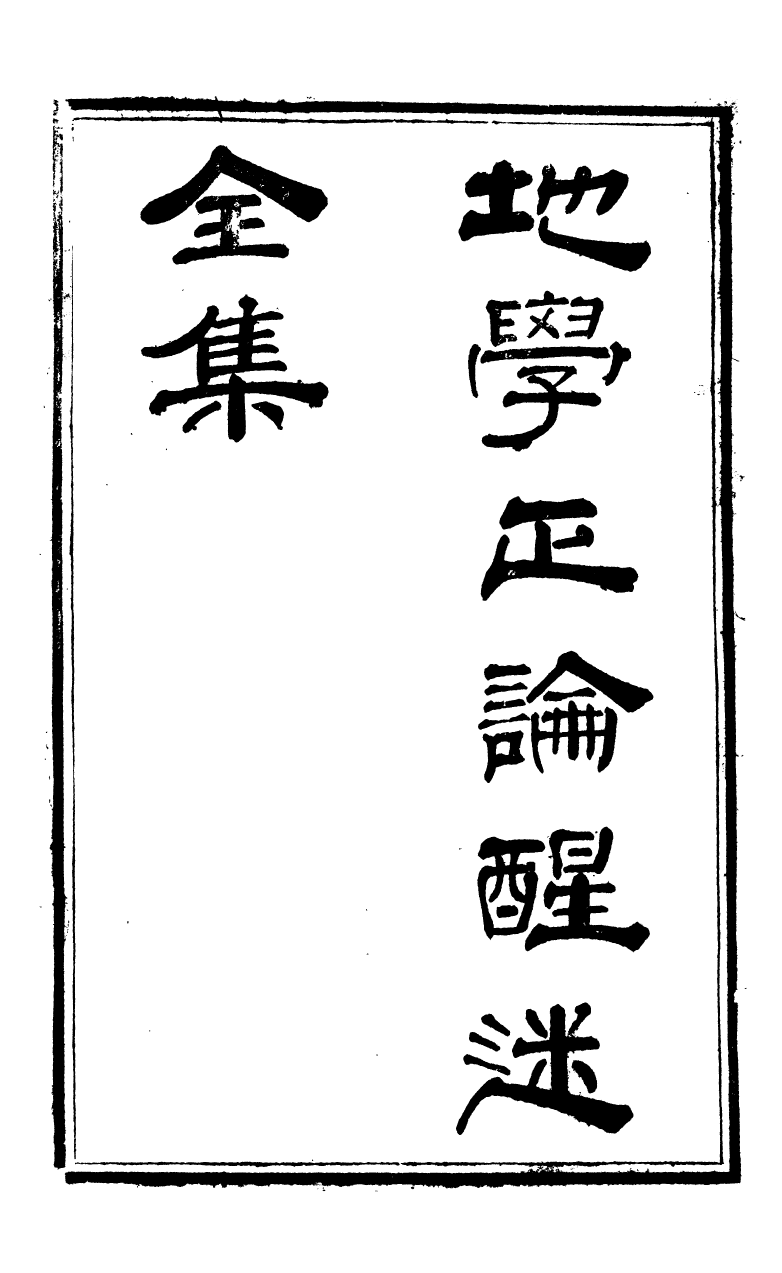 地學正論醒迷
全集